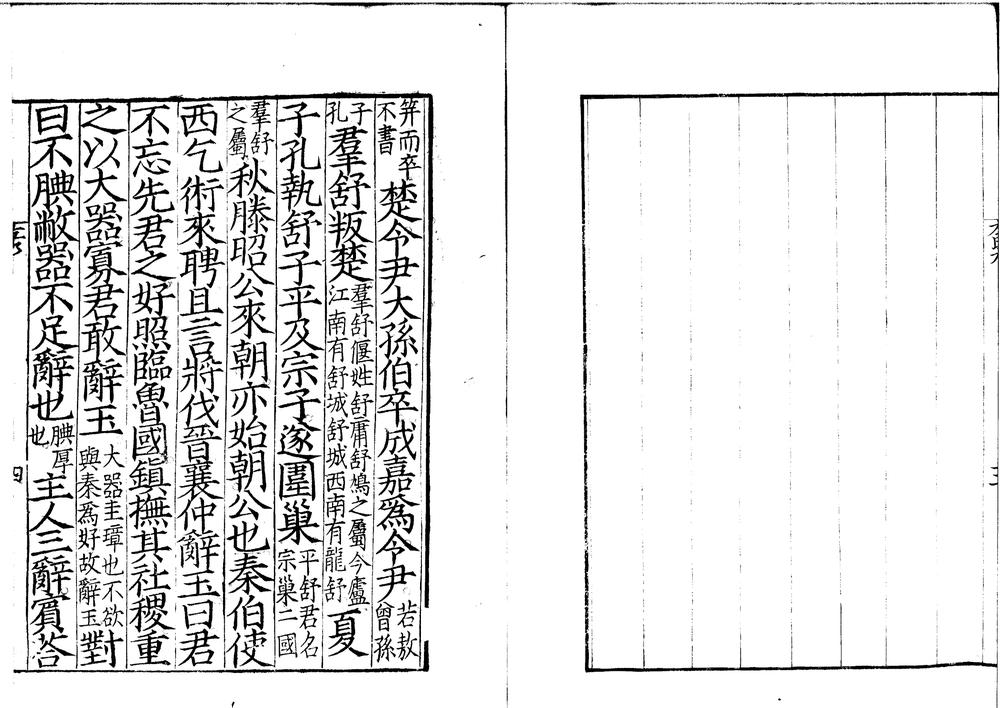 笄而卒不書楚令尹大孫伯卒成嘉爲令尹若敖曾孫
子孔羣舒叛楚羣舒偃姓舒庸舒鳩之屬今廬江南有舒城舒城西南有龍舒夏
子孔執舒子平及宗子遂圍巢平舒君名宗巢二國
羣舒之屬秋滕昭公來朝亦始朝公也秦伯使
西乞術來聘且言將伐晉襄仲辭玉曰君
不忘先君之好照臨魯國鎮撫其社稷重
之以大器寡君敢辭玉大器圭璋也不欲與秦爲好故辭玉對
曰不腆敝器不足辭也腆厚也主人三辭賓荅
四